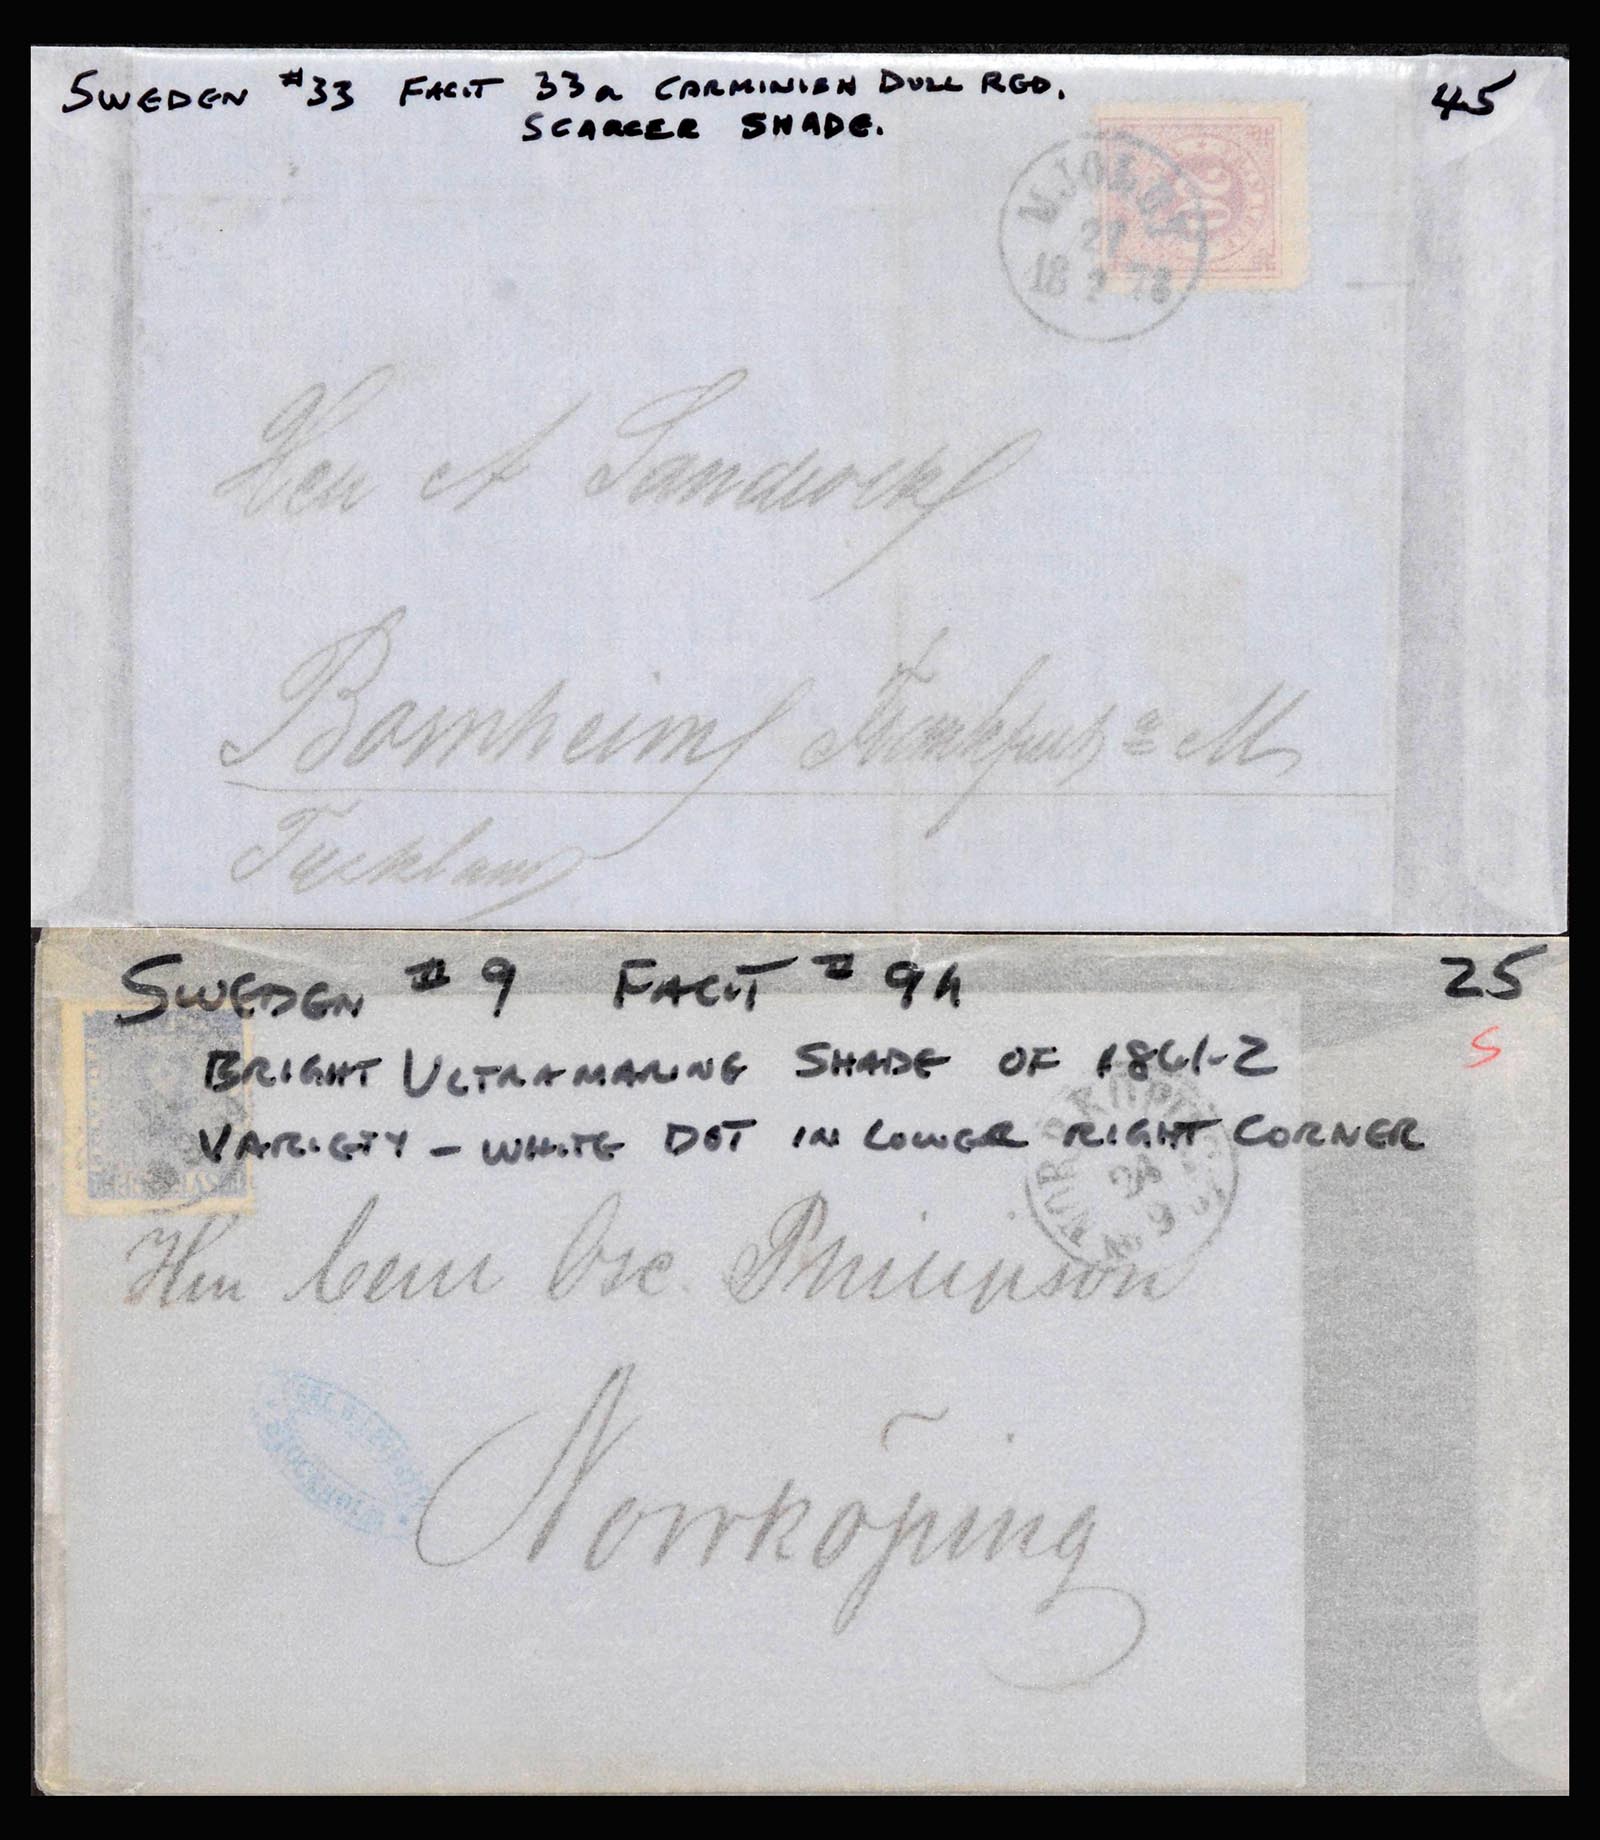 SWEDEN #33 FACIT 33a CARMINISH DULL RED.
45
SCARCER SHADE.
20
MJÖLBY
27
18 2 78
Herr A Sandrock
Bornheim Frankfurt a M
Tyskland
SWEDEN #9 FACIT #9h
25
BRIGHT ULTRAMARINE SHADE OF 1861-2
S
VARIETY - WHITE DOT IN LOWER RIGHT CORNER
Herr Osc. Philipson
Norrköping